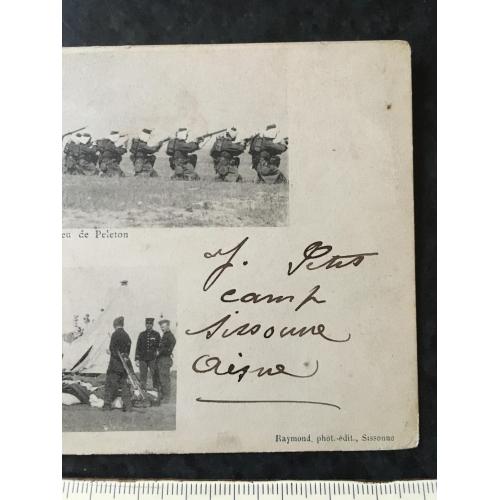 eu de Peleton
J. Petit
camp
Sissonne
Aisne
Raymond, phot.-édit., Sissonne